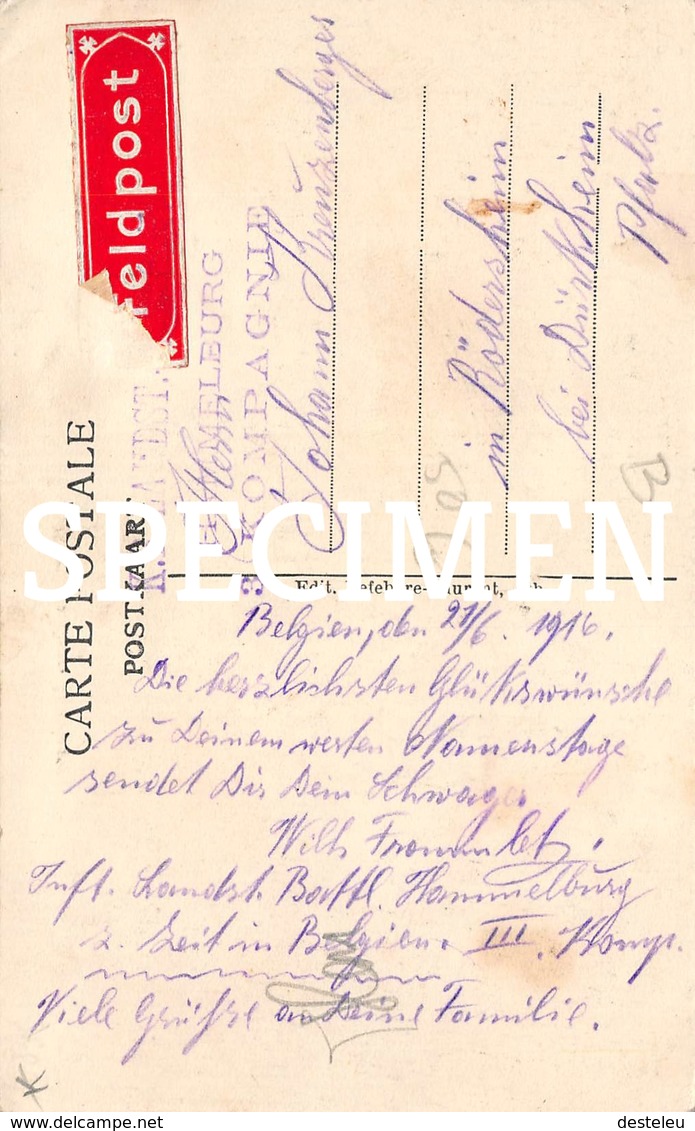 feldpost
CARTE POSTALE
POSTKAART
K. LANDST.
HAMMELBURG
3. KOMPAGNIE
Herrn
Johann Kreuzenberger
in Rödersheim
bei Dürkheim
Pfalz.
B
SPECIMEN
Edit. Lefebvre-
Belgien, den 21/6. 1916.
Die herzlichsten Glückswünsche
zu Deinem werten Namenstage
sendet Dir Dein Schwager
Wilh Frommletz.
Inft. Landst. Battl. Hammelburg
z. Zeit in Belgien. III. Komp.
Viele Grüße an Deine Familie.
K
delcampe.net
desteleu